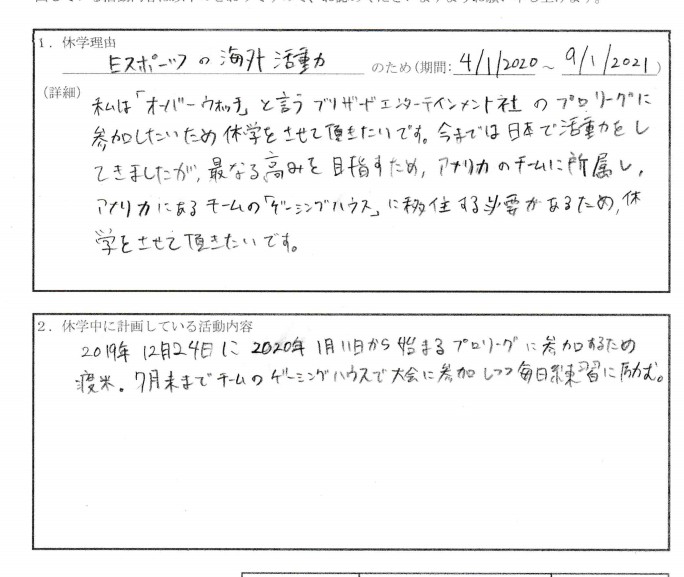 1. 休学理由
Eスポーツの海外活動 のため(期間: 4/1/2020 ~ 9/1/2021)
(詳細) 私は「オーバーウォッチ」と言うブリザードエンターテインメント社のプロリーグに
参加したいため休学をさせて頂きたいです。今までは日本で活動をし
てきましたが、最なる高みを目指すため、アメリカのチームに所属し、
アメリカにあるチームの「ゲーミングハウス」に移住する必要があるため、休
学をさせて頂きたいです。
2. 休学中に計画している活動内容
2019年12月24日に2020年1月11日から始まるプロリーグに参加するため
渡米。7月末までチームのゲーミングハウスで大会に参加しつつ毎日練習に励む。